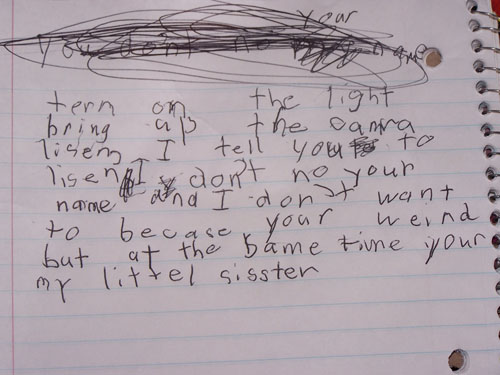 your
you dont no name
tern on the light
bring up the camra
lisen I tell you to
lisen I don't no your
name and I don't want
to becase your weind
but at the same time your
my littel sisster